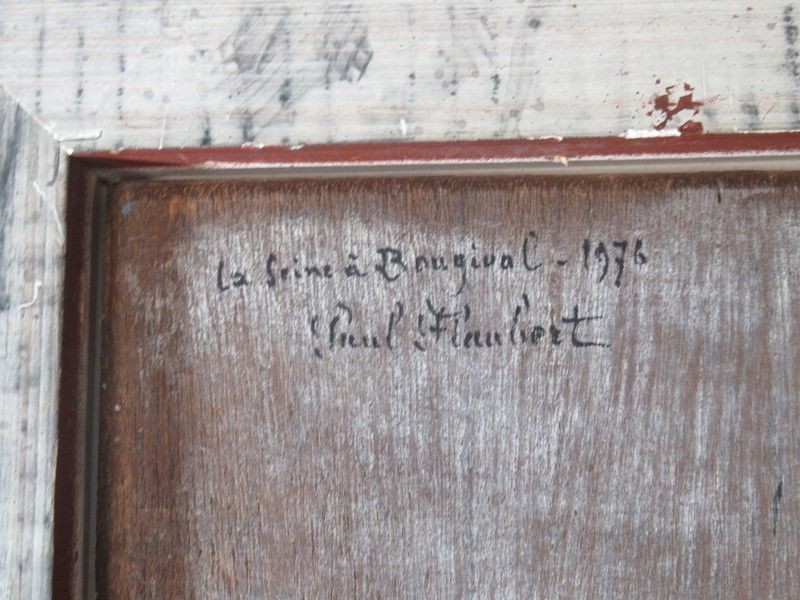 La Seine à Bougival - 1976
Paul Flaubert